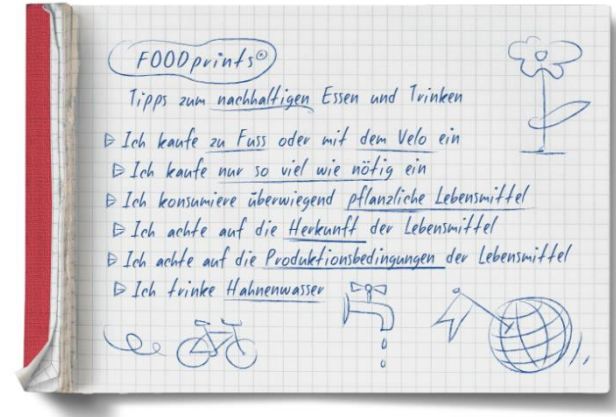 FOODprints®
Tipps zum nachhaltigen Essen und Trinken
▷ Ich kaufe zu Fuss oder mit dem Velo ein
▷ Ich kaufe nur so viel wie nötig ein
▷ Ich konsumiere überwiegend pflanzliche Lebensmittel
▷ Ich achte auf die Herkunft der Lebensmittel
▷ Ich achte auf die Produktionsbedingungen der Lebensmittel
▷ Ich trinke Hahnenwasser